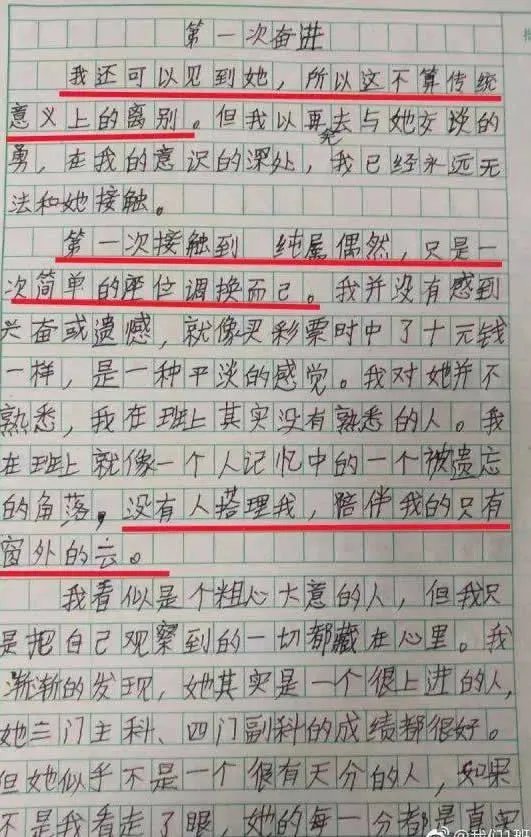 第一次奋进
我还可以见到她，所以这不算传统
意义上的离别。但我以再去与她交谈的
勇，在我的意识的深处，我已经永远无
法和她接触。
第一次接触到 纯属偶然，只是一
次简单的座位调换而已。我并没有感到
兴奋或遗憾，就像买彩票时中了十元钱
一样，是一种平淡的感觉。我对她并不
熟悉，我在班上其实没有熟悉的人。我
在班上就像一个人记忆中的一个被遗忘
的角落，没有人搭理我，陪伴我的只有
窗外的云。
我看似是个粗心大意的人，但我只
是把自己观察到的一切都藏在心里。我
渐渐的发现，她其实是一个很上进的人，
她三门主科、四门副科的成绩都很好。
但她似乎不是一个很有天分的人，如果
不是我看走了眼 她的每一分都是真实
@我们1班